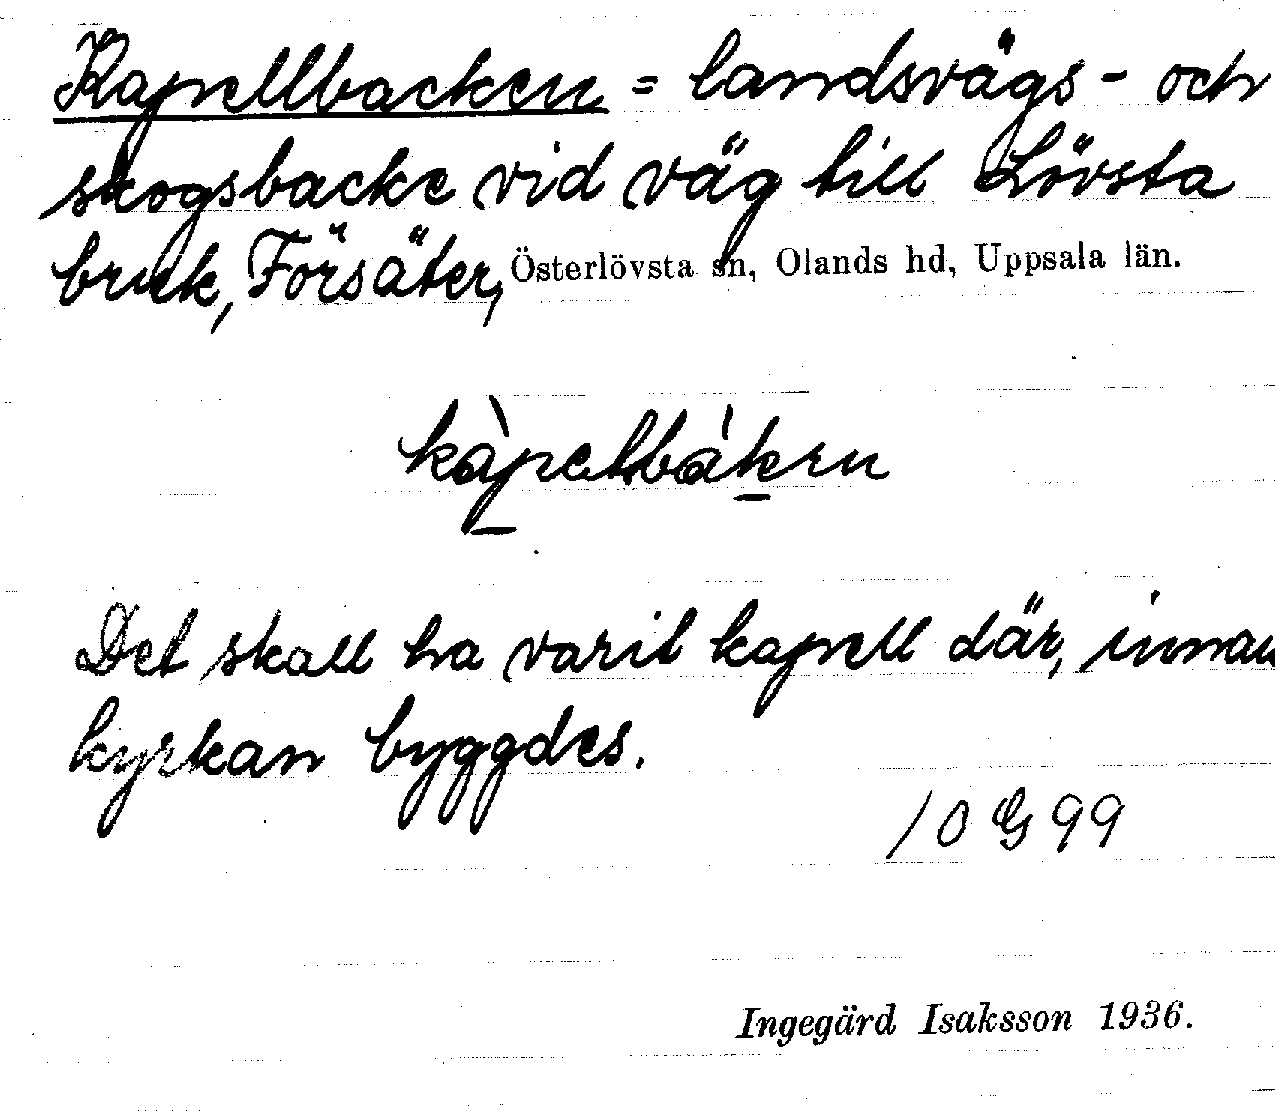 Kapellbacken = landsvägs- och
skogsbacke vid väg till Lövsta
bruk, Försäter, Österlövsta sn, Olands hd, Uppsala län.
kàpelbàken
Det skall ha varit kapell där, innan
kyrkan byggdes.
10 G 99
Ingegärd Isaksson 1936.